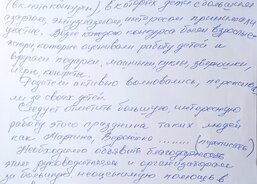 (вкл. конкурсы), в которых дети с большим
азартом, энтузиазмом, интересом принимали
участие. Жюри каждого конкурса были взрослые
которые оценивали работу детей и
вручали подарки, машинки, куклы, зверюшки,
игры, конфеты.
Родители активно волновались, пережива
ли за своих детей.
Следует отметить большую, интересную
работу этого праздника таких людей
как Марина, (приписать)
Необходимо объявить благодарность
этим руководителям и организаторам
за большую неоценимую помощь в